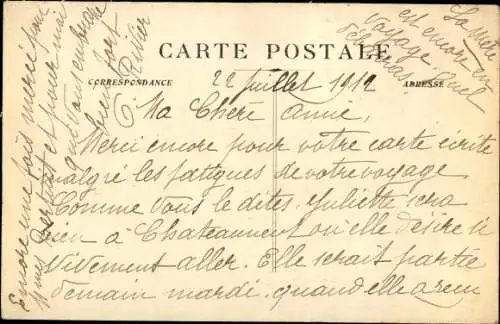 CARTE POSTALE
CORRESPONDANCE
ADRESSE
22 Juillet 1912
Ma Chère Annie,
Merci encore pour votre carte écrite
malgré les fatigues de votre voyage
Comme vous le dites, Juliette sera
bien à Chateauneuf où elle désire si
vivement aller. Elle serait partie
demain mardi, quand elle a reçu
Encore une fois merci pour
Mme et pour moi
que vous embrasse
bien fort
La mère
est encore en
voyage. Quel